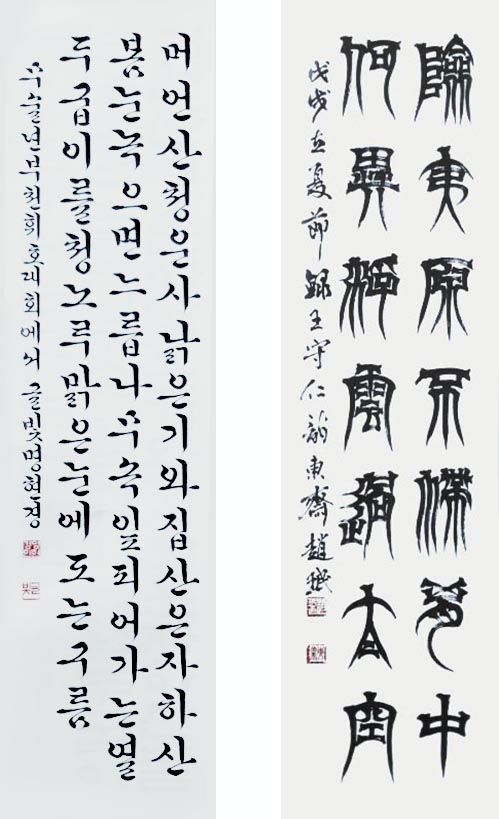 險夷原不滯匈中
何異浮雲過太空
戊戌立夏節錄王守仁詩東齋趙
머언산청운사낡은기와집산은자하산
봄눈녹으면느릅나무속잎피어가는열
두굽이를청노루맑은눈에도는구름
무술년부천휘호대회에서글빛명현정